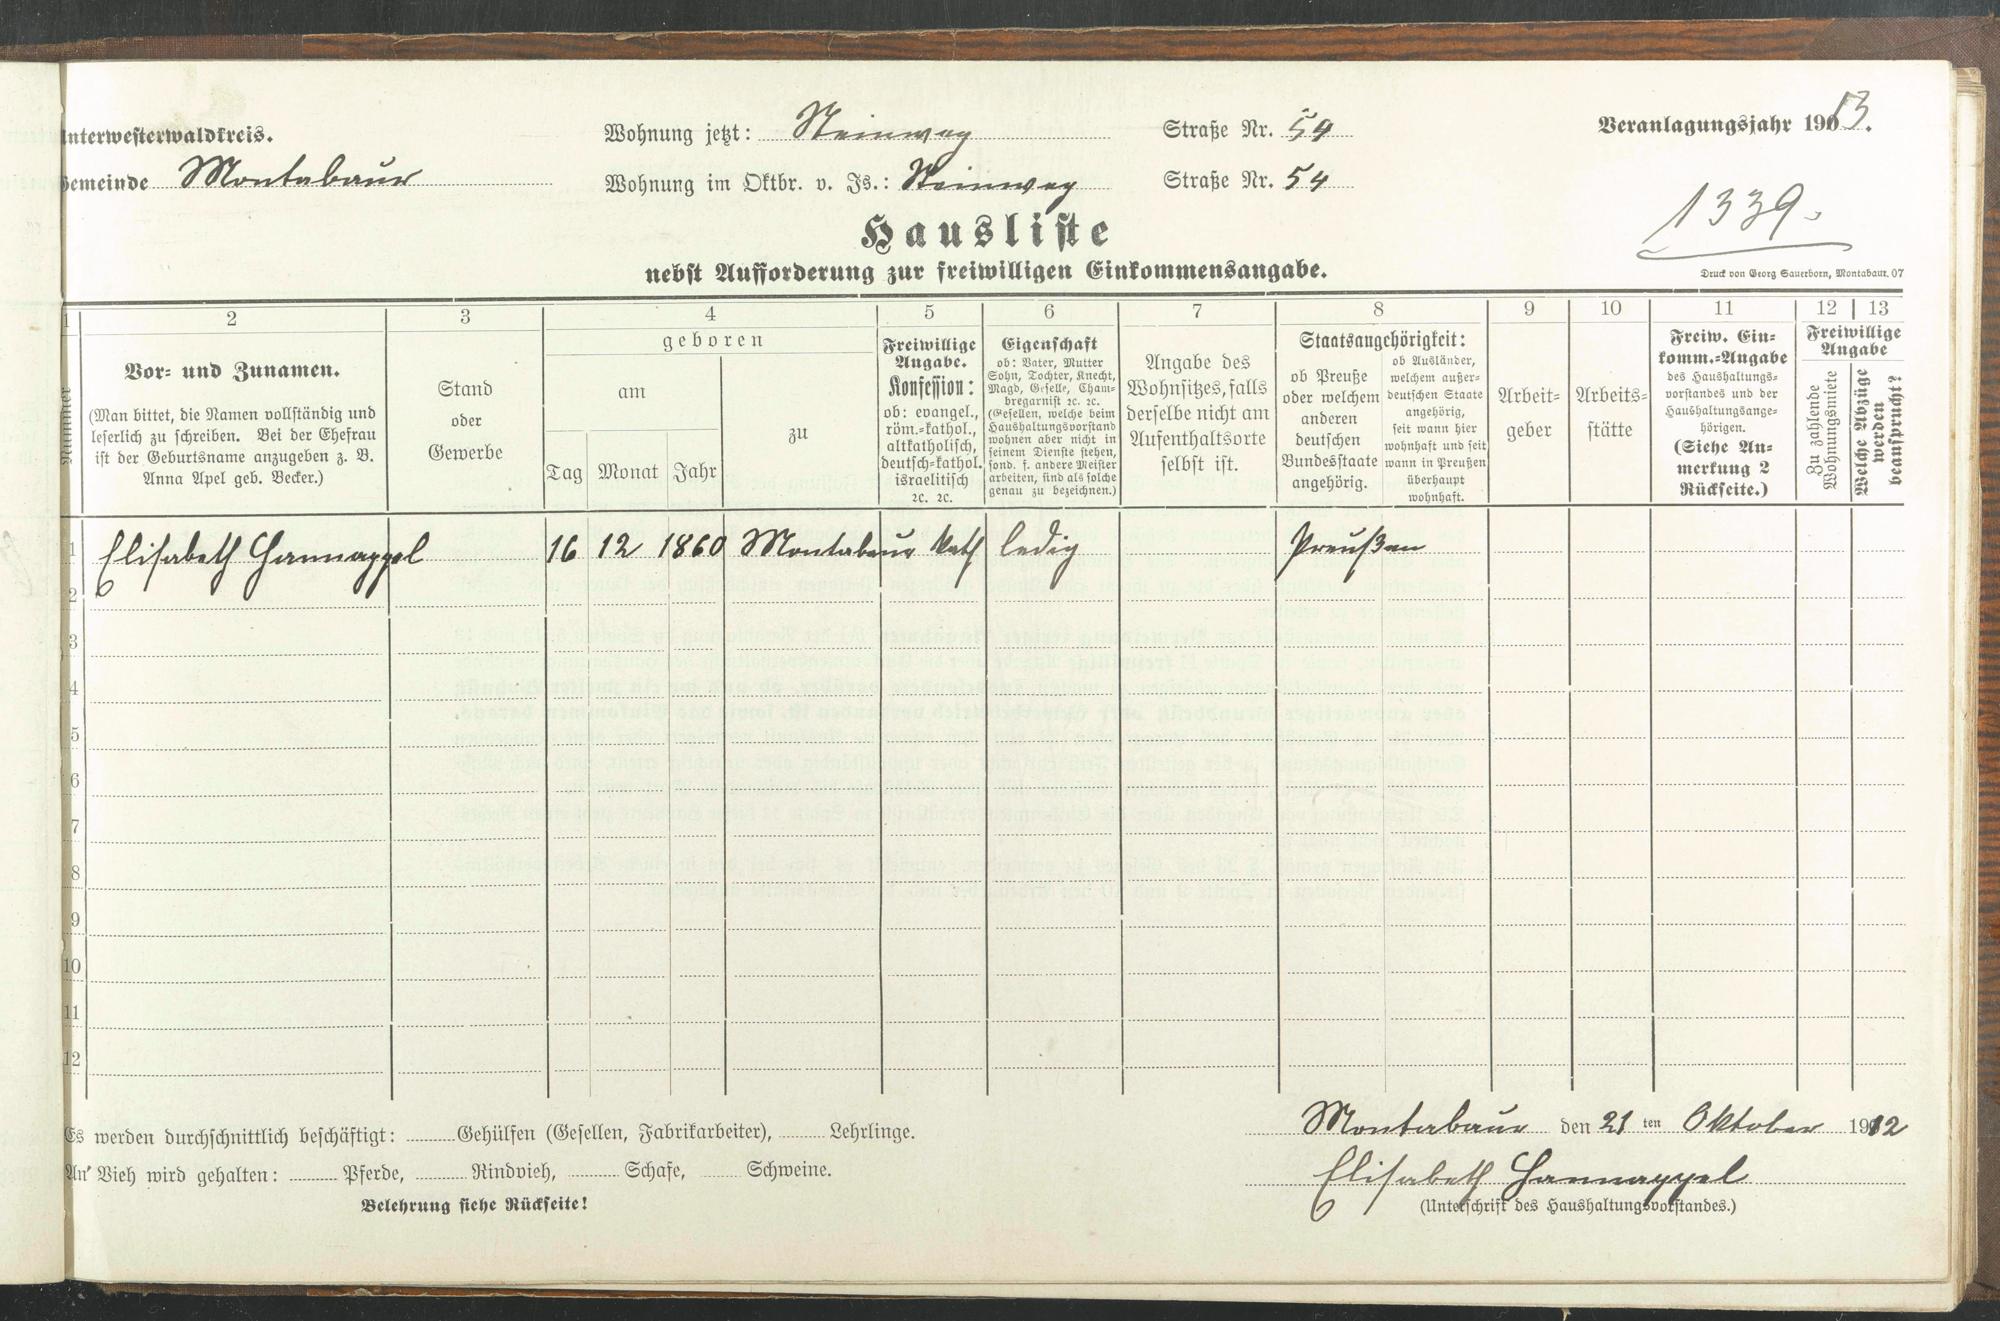 Unterwesterwaldkreis.
Gemeinde Montabaur
Wohnung jetzt: Steinweg Straße Nr. 54
Wohnung im Oktbr. v. Js.: Steinweg Straße Nr. 54
Veranlagungsjahr 1913.
1339.
Hausliste
nebst Aufforderung zur freiwilligen Einkommensangabe.
Druck von Georg Sauerborn, Montabaur. 07
1
Nummer
2
Vor- und Zunamen.
(Man bittet, die Namen vollständig und
leserlich zu schreiben. Bei der Ehefrau
ist der Geburtsname anzugeben z. B.
Anna Apel geb. Becker.)
3
Stand
oder
Gewerbe
4
geboren
am
Tag Monat Jahr
zu
5
Freiwillige
Angabe.
Konfession:
ob: evangel.,
röm.-kathol.,
altkatholisch,
deutsch-kathol.
israelitisch
ꝛc. ꝛc.
6
Eigenschaft
ob: Vater, Mutter
Sohn, Tochter, Knecht,
Magd, Geselle, Cham-
bregarnist ꝛc. ꝛc.
(Gesellen, welche beim
Haushaltungsvorstand
wohnen aber nicht in
seinem Dienste stehen,
sond. f. andere Meister
arbeiten, sind als solche
genau zu bezeichnen.)
7
Angabe des
Wohnsitzes, falls
derselbe nicht am
Aufenthaltsorte
selbst ist.
8
Staatsangehörigkeit:
ob Preuße
oder welchem
anderen
deutschen
Bundesstaate
angehörig.
ob Ausländer,
welchem außer-
deutschen Staate
angehörig,
seit wann hier
wohnhaft und seit
wann in Preußen
überhaupt
wohnhaft.
9
Arbeit-
geber
10
Arbeits-
stätte
11
Freiw. Ein-
komm.-Angabe
des Haushaltungs-
vorstandes und der
Haushaltungsange-
hörigen.
(Siehe An-
merkung 2
Rückseite.)
12 13
Freiwillige
Angabe
Zu zahlende
Wohnungsmiete
Welche Abzüge
werden
beansprucht?
1 Elisabeth Hannappel 16 12 1860 Montabaur kath ledig Preußen
2
3
4
5
6
7
8
9
10
11
12
Es werden durchschnittlich beschäftigt: Gehülfen (Gesellen, Fabrikarbeiter), Lehrlinge.
An Vieh wird gehalten: Pferde, Rindvieh, Schafe, Schweine.
Belehrung siehe Rückseite!
Montabaur den 21 ten Oktober 1912
Elisabeth Hannappel
(Unterschrift des Haushaltungsvorstandes.)